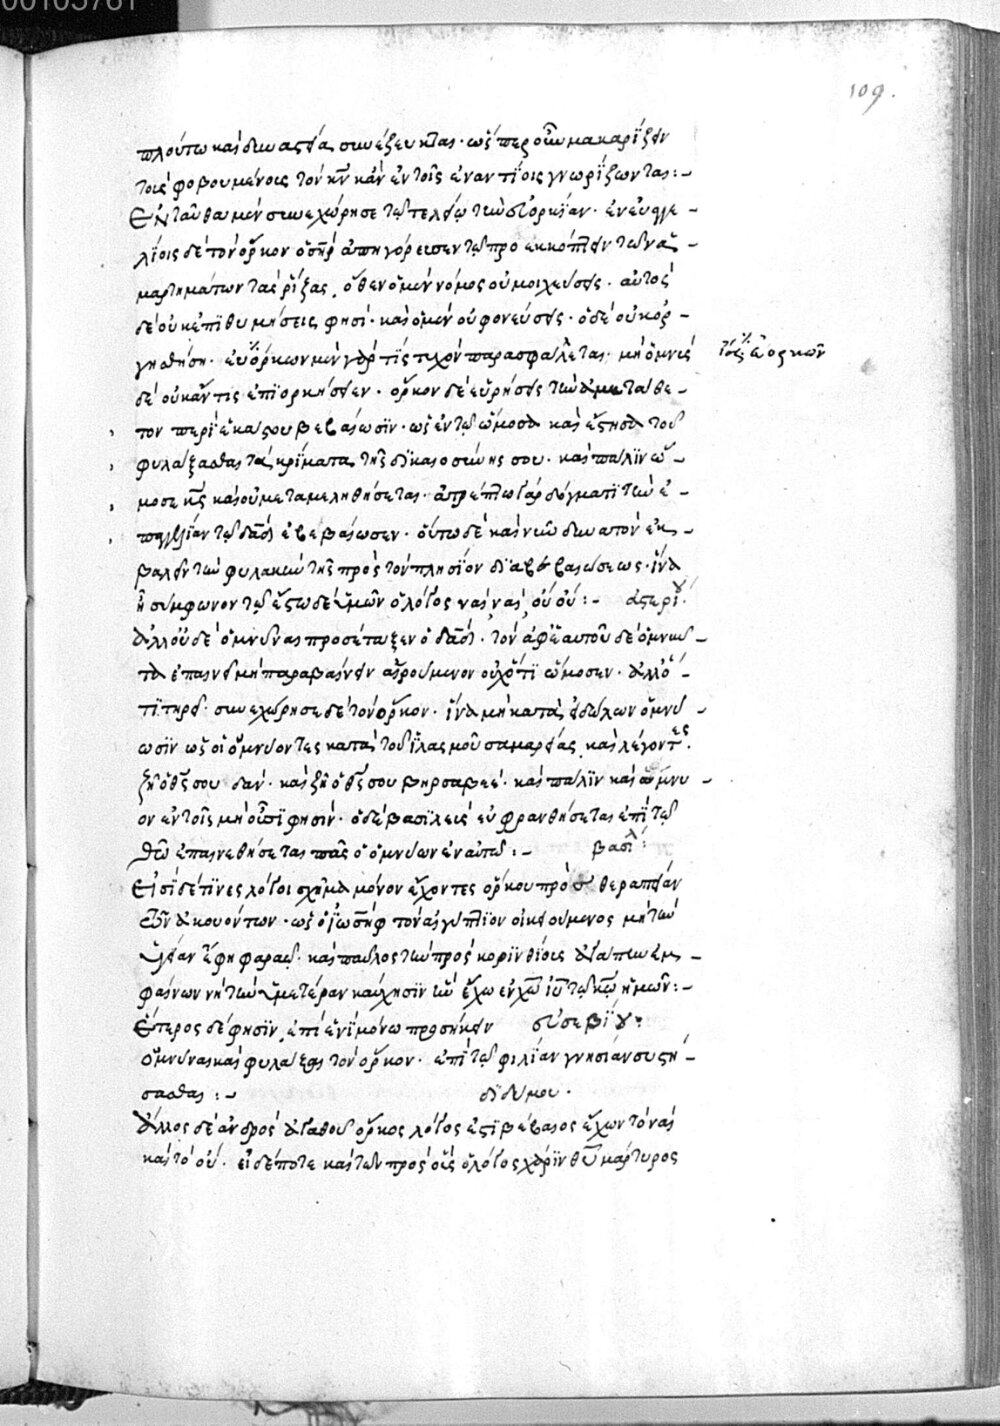 109.
πλούτω καὶ δυναστεία συνέξευκται· ὥσπερ οὖν μακαρίζειν
τοὺς φοβουμένους τὸν κν κἂν ἐν τοῖς ἐναντίοις γνωρίζωνται:-
Ἐνταῦθα μὲν συνεχώρησε τῶ τελείω τὴν εὐορκίαν· ἐν εὐαγγε-
λίοις δὲ τὸν ὅρκον ὁ σηρ ἀπηγόρευσεν τῶ προεκκόπτειν τῶν ἁ-
μαρτημάτων τὰς ῥίζας, ὅθεν ὁ μὲν νόμος οὐ μοιχεύσεις· αὐτὸς
δὲ οὐκ ἐπιθυμήσεις, φησί· καὶ ὁ μὲν οὐ φονεύσεις· ὁ δὲ οὐκ ὀρ-
γισθήση· εὐόρκων μὲν γὰρ τὶς τυχὸν παρασφαλεῖται· μὴ ὀμνὺς
δὲ οὐκ ἄν τις ἐπιορκήσειεν· ὅρκον δὲ εὑρήσεις τὴν ἀμετάθε-
τον περὶ ἑκάστου βεβαίωσιν· ὡς ἐν τῶ ὤμοσα καὶ ἔστησα τοῦ
φυλάξασθαι τὰ κρίματα τῆς δικαιοσύνης σου· καὶ πάλιν ὤ-
μοσε κς καὶ οὐ μεταμεληθήσεται· ἀτρέπτω γὰρ δόγματι τὴν ἐ-
παγγελίαν τῶ δαδ ἐβεβαίωσεν· οὕτω δὲ καὶ νῦν δυνατὸν ἐκ-
βαλεῖν τὴν φυλακὴν τῆς πρὸς τὸν πλησίον διαβεβαιώσεως· ἵνα
ἦ σύμφωνον τῶ ἔστω δὲ ὑμῶν ὁ λόγος ναὶ ναί, οὐ οὔ:- ἀστερίου·
Ἀλλ' οὐδὲ ὀμνύναι προσέταξεν ὁ δαδ· τὸν ἀφ' ἑαυτοῦ δὲ ὀμνύον-
τα ἐπαινεῖ μὴ παραβαίνειν αἱρούμενον οὐχ ὅτι ὤμοσεν· ἀλλ' ὅ-
τι τηρεῖ· συνεχώρησε δὲ τὸν ὅρκον· ἵνα μὴ κατὰ εἰδώλων ὀμνύ-
ωσιν ὡς οἱ ὀμνύοντες κατὰ τοῦ ἱλασμοῦ σαμαρείας, καὶ λέγοντες·
ζῆ ὁ θς σου δάν· καὶ ζῆ ὁ θς σου βηρσαβεέ· καὶ πάλιν καὶ ὤμνυ-
ον ἐν τοῖς μὴ οὖσι φησίν· ὁ δὲ βασιλεὺς εὐφρανθήσεται ἐπὶ τῶ
θῶ ἐπαινεθήσεται πᾶς ὁ ὀμνύων ἐν αὐτῶ:- βασιλ:
Εἰσὶ δέ τινες λόγοι σχῆμα μόνον ἔχοντες ὅρκου πρὸς θεραπείαν
τῶν ἀκουόντων· ὡς ὁ ἰωσὴφ τὸν αἰγύπτιον οἰκειούμενος μὴ τὴν
ὑγείαν ἔφη φαραώ· καὶ παῦλος τὴν πρὸς κορινθίους ἀγάπην ἐμ-
φαίνων νὴ τὴν ὑμετέραν καύχησιν ἣν ἔχω ἐν χω ιυ τῶ κω ἡμῶν:-
Ἕτερος δέ φησιν, ἐπὶ ἑνὶ μόνω προσήκειν εὐσεβίου:
ὀμνύναι καὶ φυλάξαι τὸν ὅρκον· ἐπὶ τῶ φιλίαν γνησίαν συστή-
σασθαι:- διδύμου·
Ἄλλος δὲ ἀνδρὸς ἀγαθοῦ ὅρκος λόγος ἐστὶ βέβαιος ἔχων τὸ ναὶ
καὶ τὸ οὔ· εἰ δέ ποτε καὶ τῶν πρὸς οὓς ὁ λόγος χάριν θυ μάρτυρος